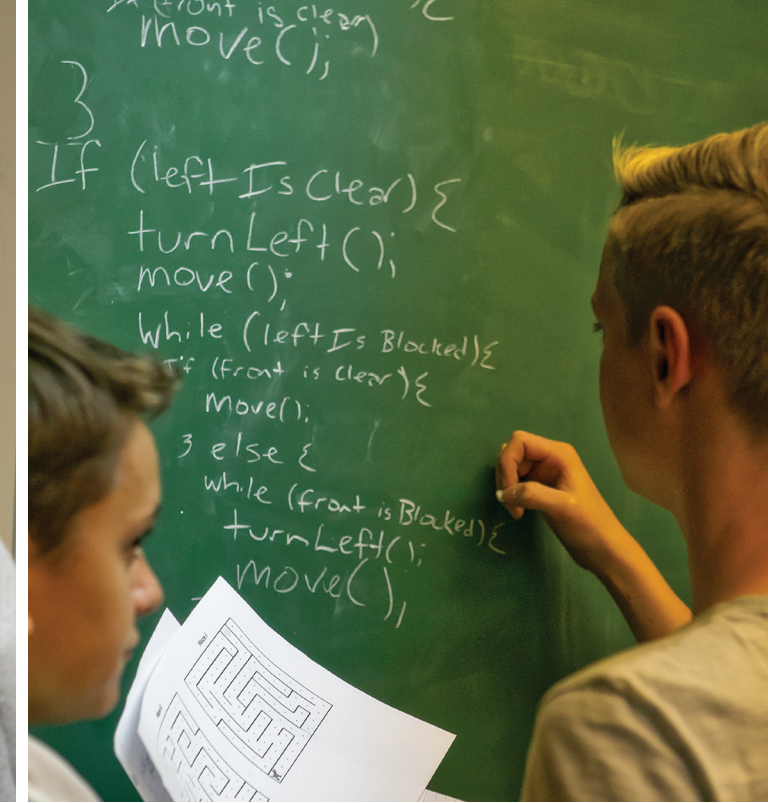 (front is clear) {
move();
}
If (left Is Clear) {
turnLeft();
move();
While (left Is Blocked) {
if (front is clear) {
Move();
} else {
while (front is Blocked) {
turnLeft();
move();